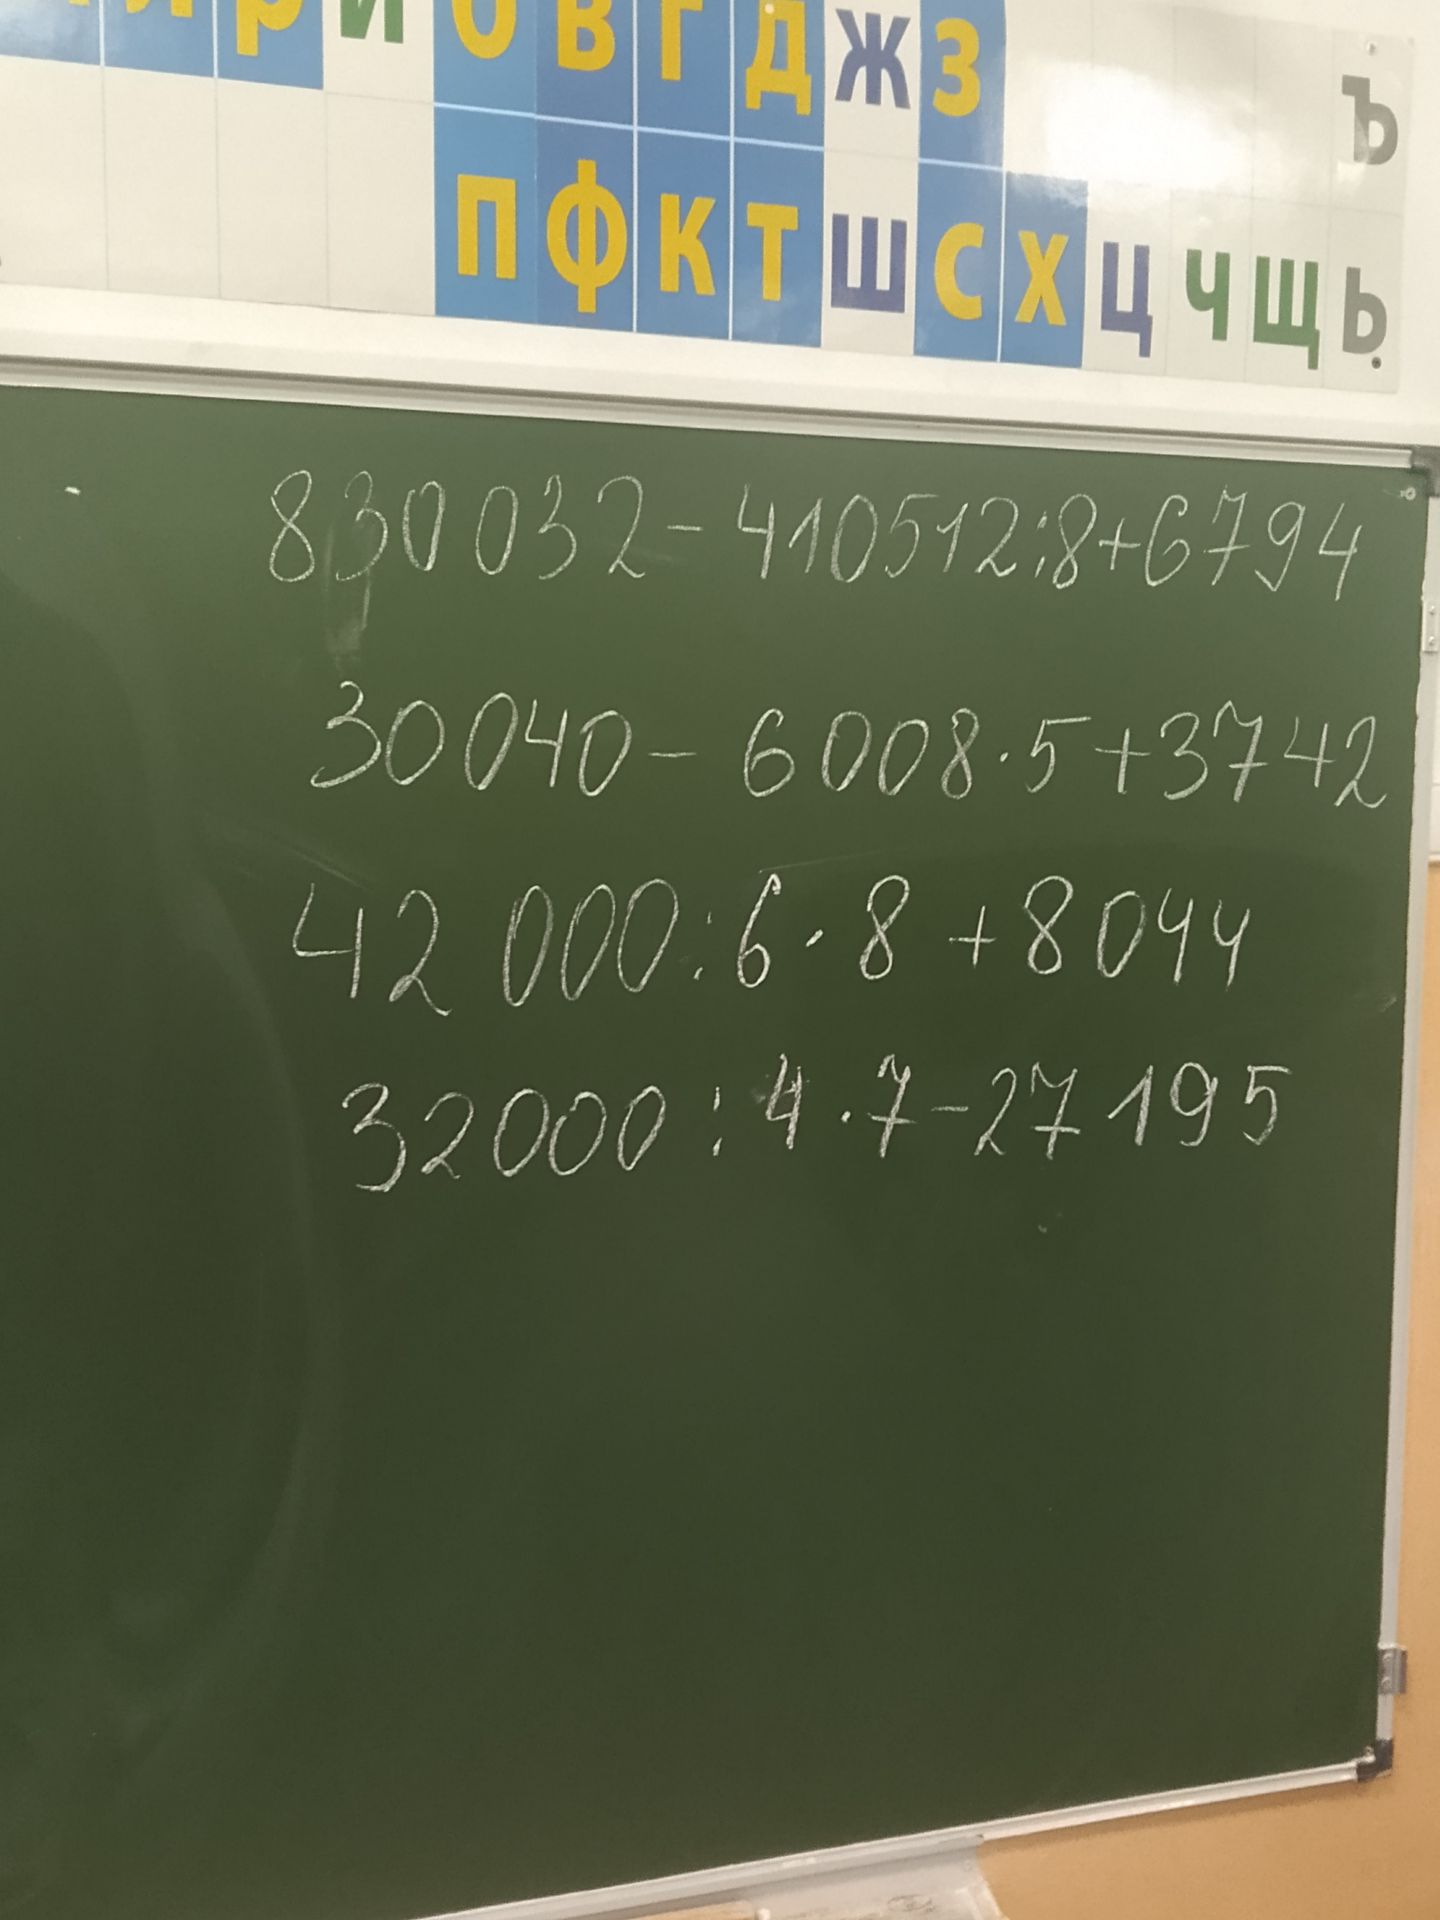 Й О В Г Д Ж З Ъ
П Ф К Т Ш С Х Ц Ч Щ Ь
830032-410512:8+6794
30040-6008·5+3742
42 000:6·8+8044
32000:4·7-27195